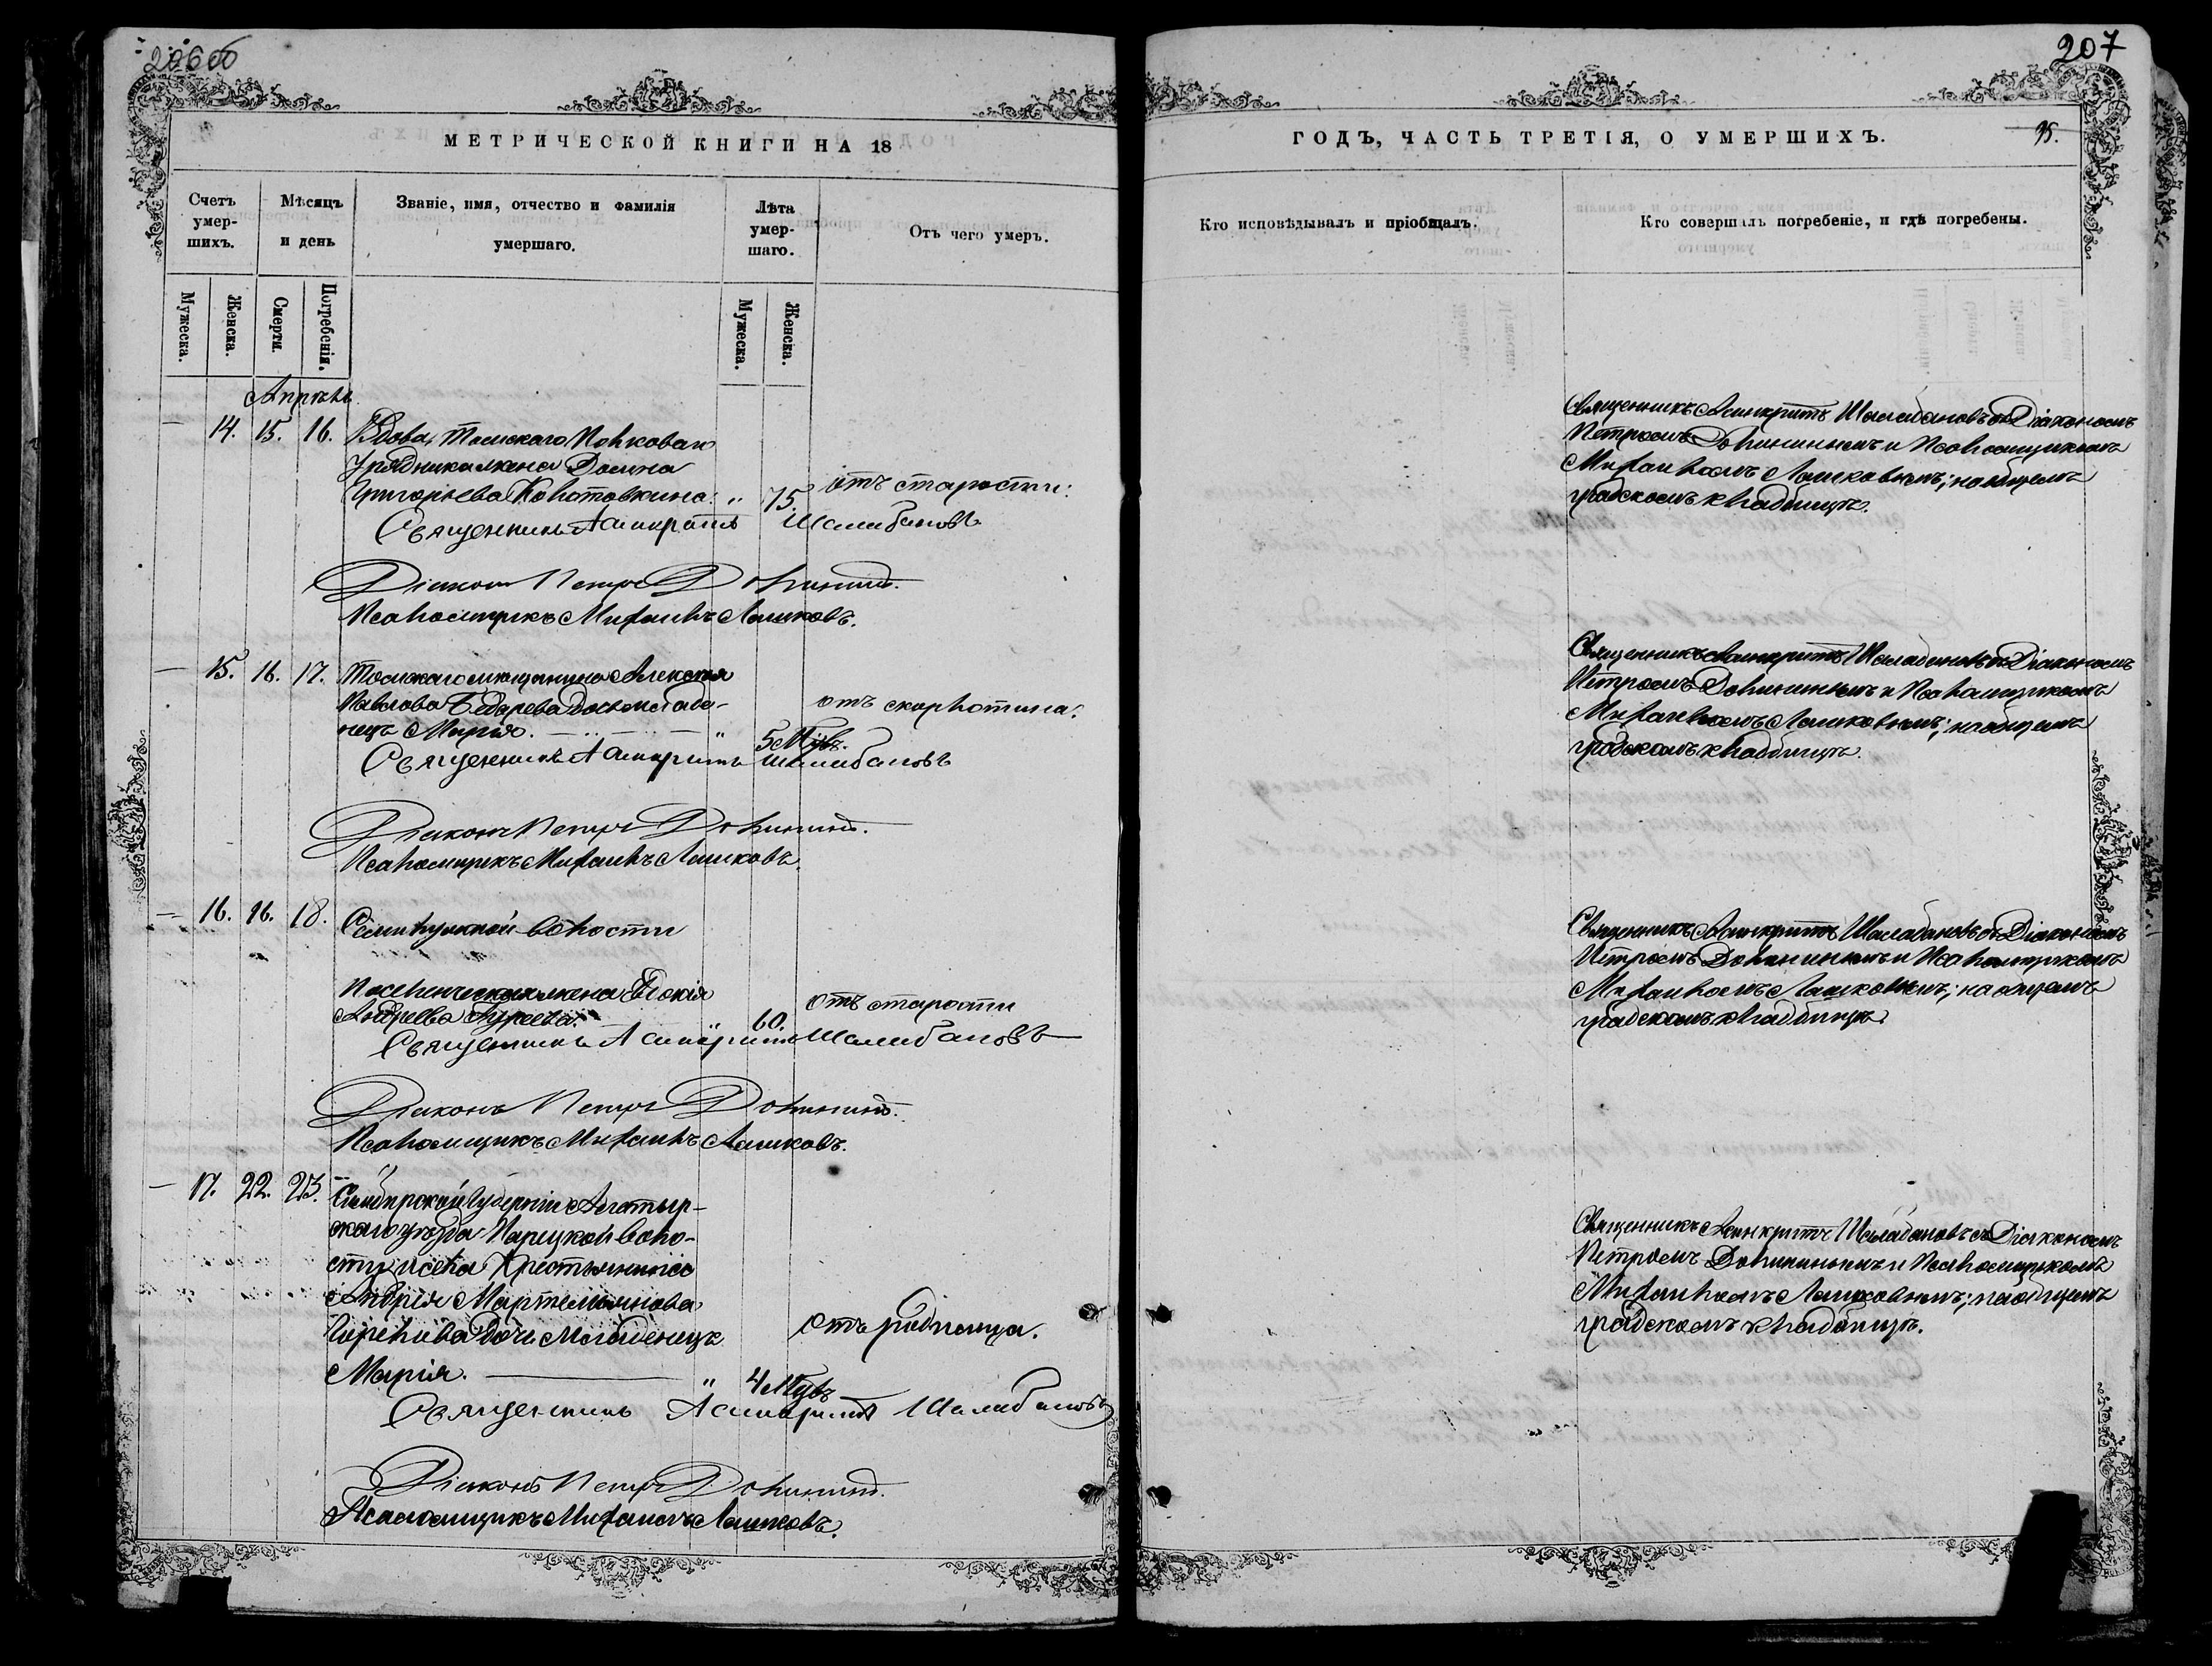 206об
207
МЕТРИЧЕСКОЙ КНИГИ НА 18
ГОДЪ, ЧАСТЬ ТРЕТІЯ, О УМЕРШИХЪ.
95.
Счетъ умер-шихъ.
Мѣсяцъ и день
Званіе, имя, отчество и фамилія умершаго.
Лѣта умер-шаго.
Отъ чего умеръ.
Кто исповѣдывалъ и пріобщалъ.
Кто совершалъ погребеніе, и гдѣ погребены.
Мужеска.
Женска.
Смерти.
Погребенія.
Мужеска.
Женска.
Апрѣль
— 14. 15. 16.
Вдова, Томскаго
Урядника жена Домна
Григорьева
„ 75.
отъ старости.
Священникъ Асинкритъ Шалабановъ
Діаконъ Петръ Долининъ.
Псаломщикъ Михаилъ Лашковъ.
Священникъ Асинкритъ Шалабановъ съ Діакономъ
Петромъ Долининымъ и Псаломщикомъ
Михаиломъ Лашковымъ; на общемъ
градскомъ кладбищѣ.
— 15. 16. 17.
Томскаго мѣщанина Алексѣя
Павлова дочь младе-
нецъ Марія.
„ 5 Мцвъ.
отъ скорлотина.
Священникъ Асинкритъ Шалабановъ
Діаконъ Петръ Долининъ.
Псаломщикъ Михаилъ Лашковъ.
Священникъ Асинкритъ Шалабановъ съ Діакономъ
Петромъ Долининымъ и Псаломщикомъ
Михаиломъ Лашковымъ; на общемъ
градскомъ кладбищѣ.
— 16. 16. 18.
Семилужной волости
Поселенческая жена
Андреева
„ 60.
отъ старости
Священникъ Асинкритъ Шалабановъ
Діаконъ Петръ Долининъ.
Псаломщикъ Михаилъ Лашковъ.
Священникъ Асинкритъ Шалабановъ съ Діакономъ
Петромъ Долининымъ и Псаломщикомъ
Михаиломъ Лашковымъ; на общемъ
градскомъ кладбищѣ.
— 17. 22. 23.
Симбирской Губерніи Алатыр-
скаго уѣзда Порецкой воло-
сти и села Крестьянина
Андрея Мартемьянова
дочь Младенецъ
Марія.
„ 4 Мцвъ
отъ родимца.
Священникъ Асинкритъ Шалабановъ
Діаконъ Петръ Долининъ.
Псаломщикъ Михаилъ Лашковъ.
Священникъ Асинкритъ Шалабановъ съ Діакономъ
Петромъ Долининымъ и Псаломщикомъ
Михаиломъ Лашковымъ; на общемъ
градскомъ кладбищѣ.